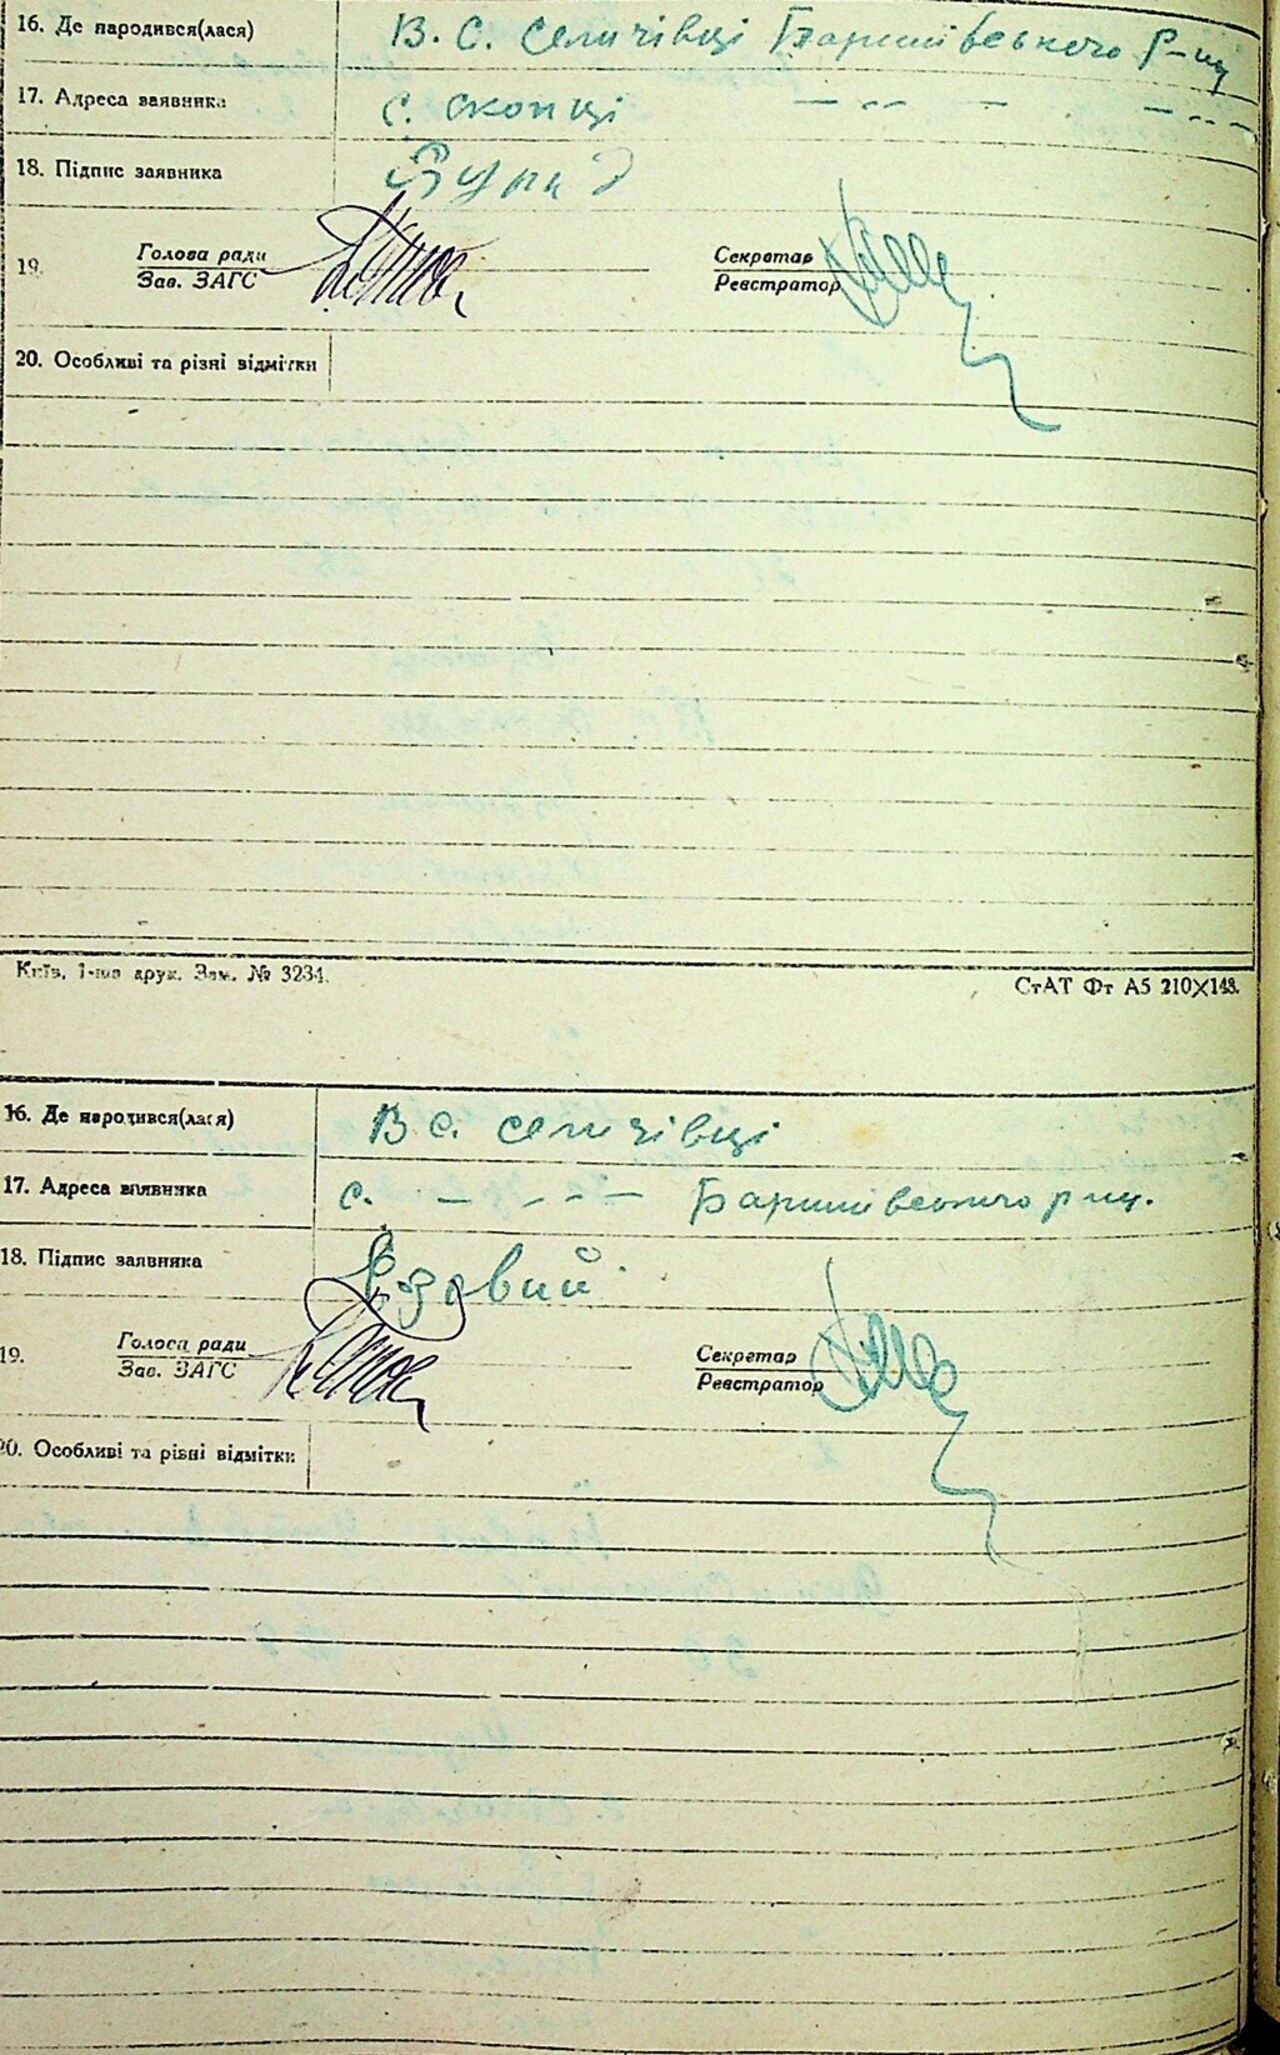 16. Де народився(лася) В. с. Селичівці Баришівського р-ну
17. Адреса заявника с. Скопці — - - — — - - -
18. Підпис заявника
19. Голова ради Секретар
Зав. ЗАГС Реєстратор
20. Особливі та різні відмітки
Київ, 1-ша друк. Зам. № 3234. СтАТ Фт А5 210×148.
16. Де народився(лася) В с. Селичівці
17. Адреса заявника с. — - - — Баришівського р ну.
18. Підпис заявника
19. Голова ради Секретар
Зав. ЗАГС Реєстратор
20. Особливі та різні відмітки